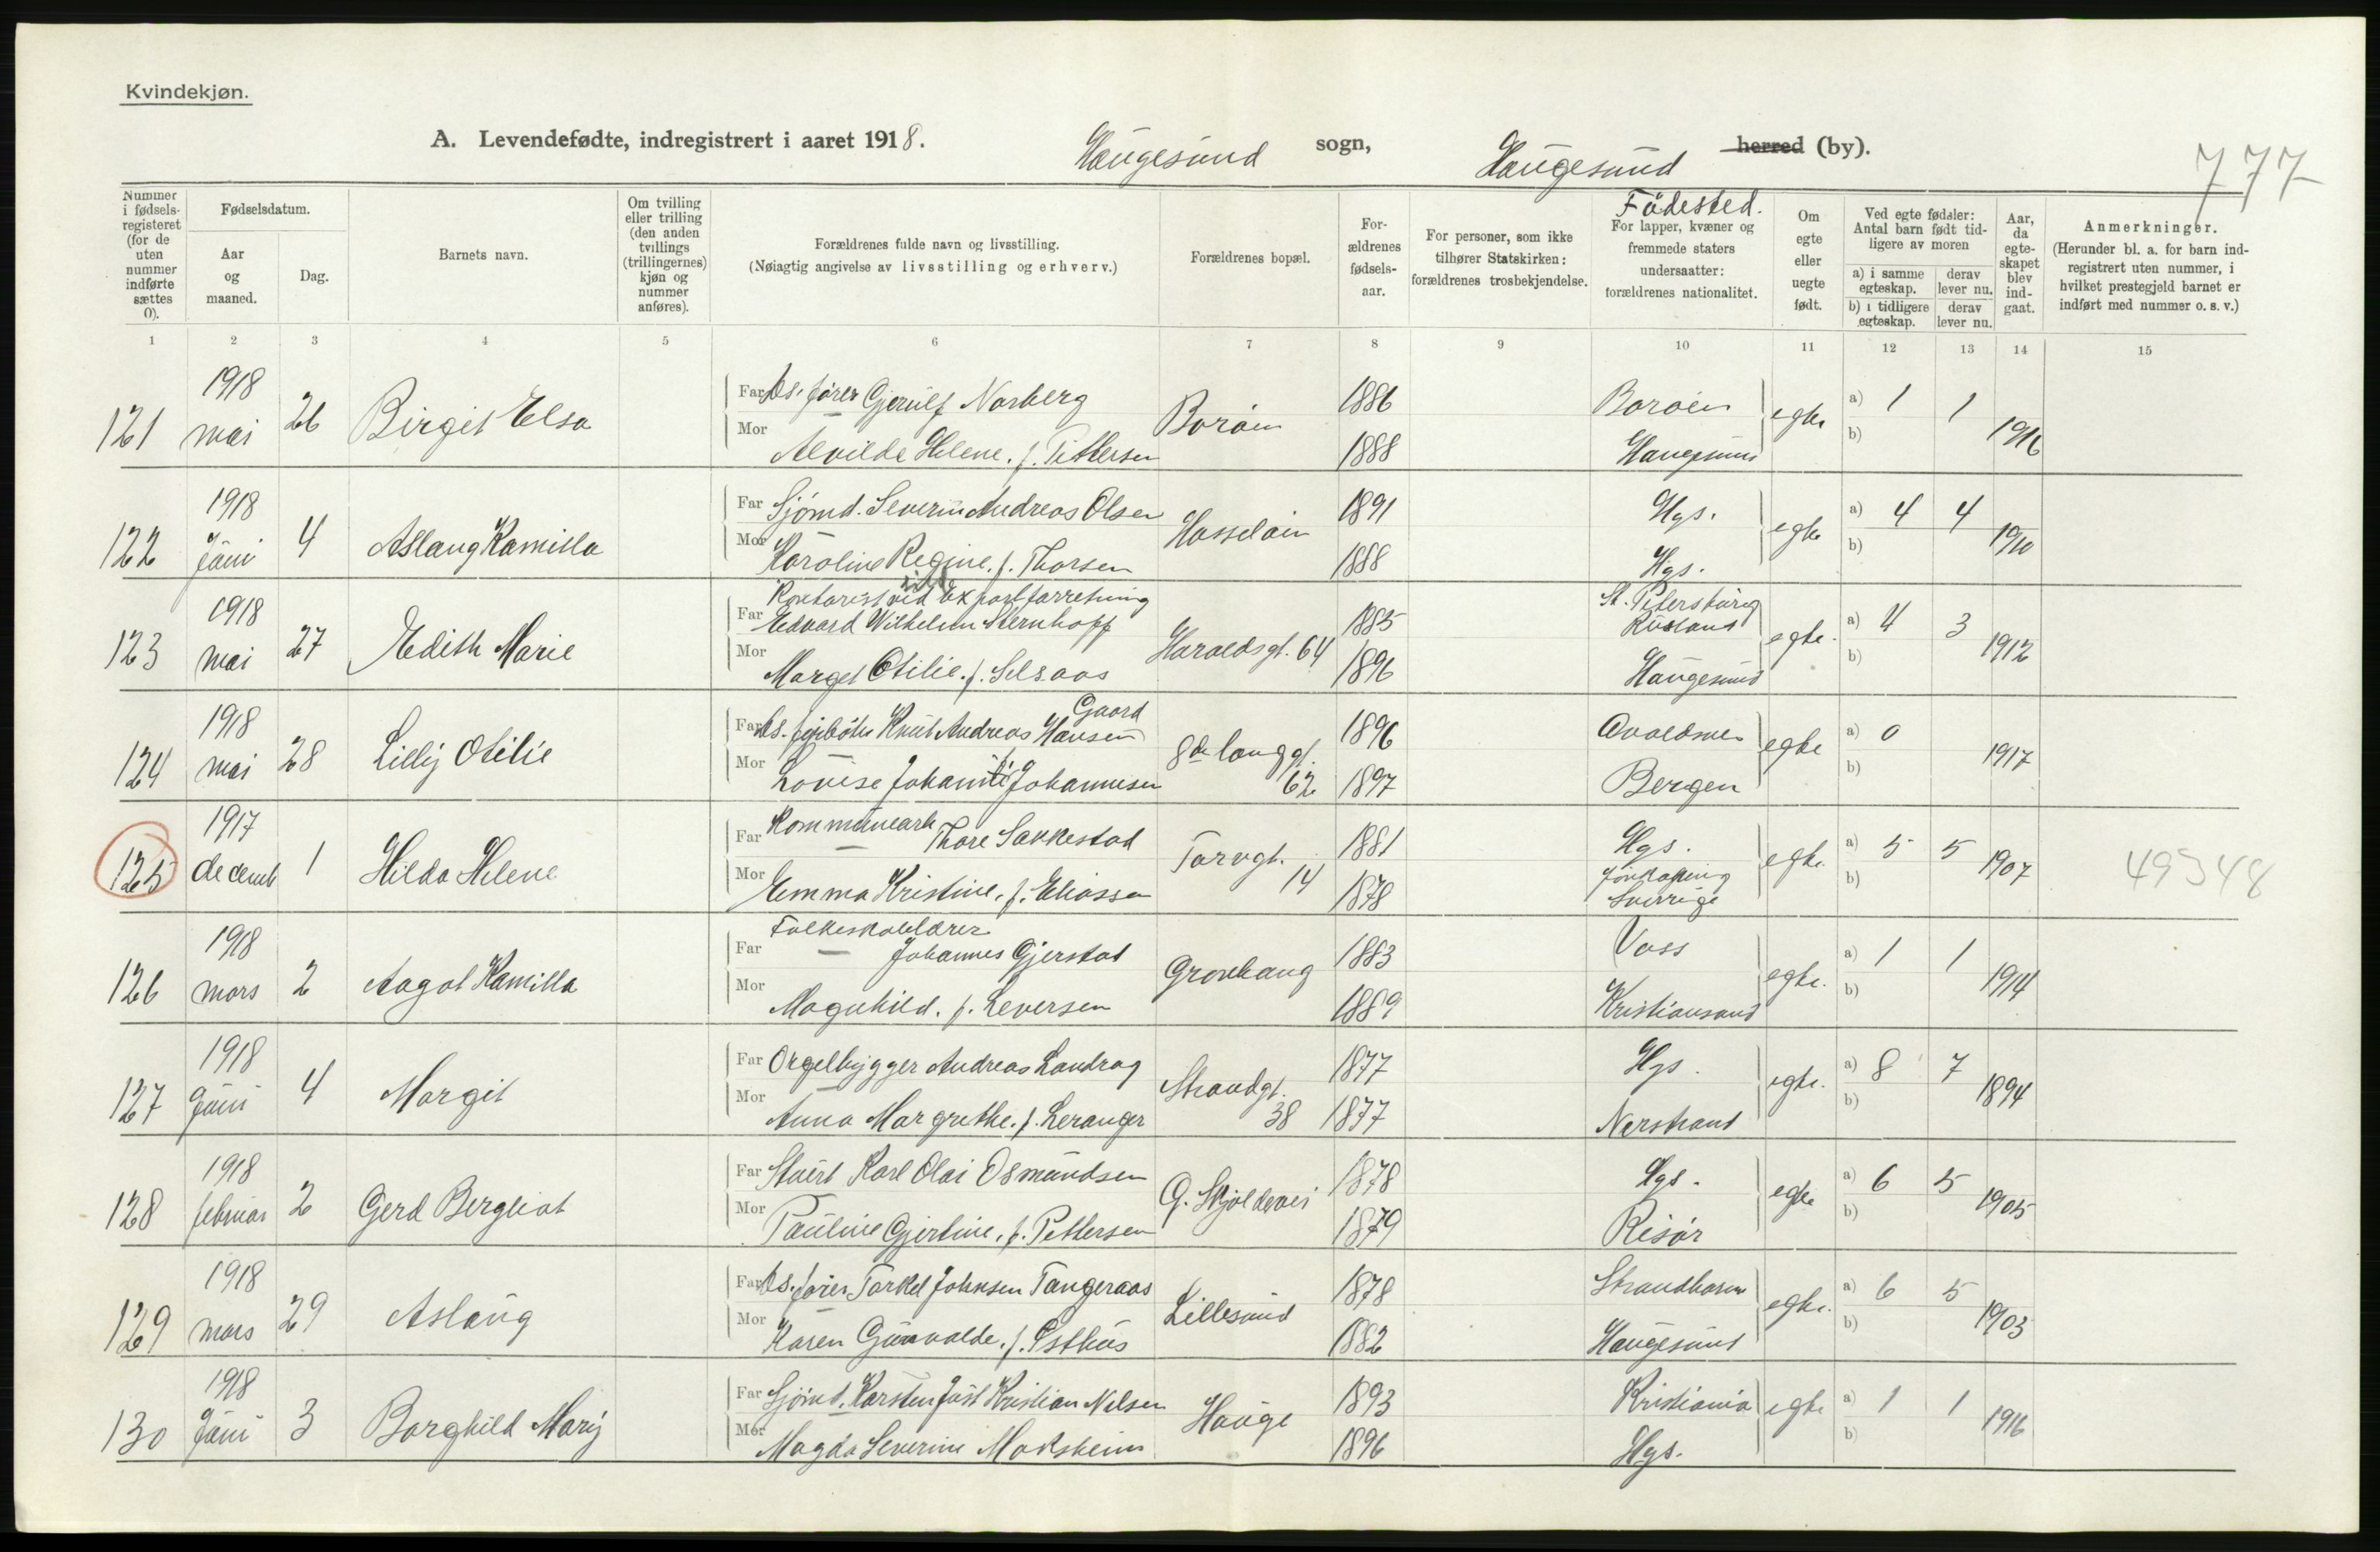 Kvindekjøn.
A. Levendefødte, indregistrert i aaret 1918.
Haugesund sogn, Haugesund herred (by).
777
Nummer i fødselsregisteret (for de uten nummer indførte sættes 0).
Fødselsdatum.
Aar og maaned.
Dag.
Barnets navn.
Om tvilling eller trilling (den anden tvillings (trillingernes) kjøn og nummer anføres).
Forældrenes fulde navn og livsstilling.
(Nøiagtig angivelse av livsstilling og erhverv.)
Forældrenes bopæl.
Forældrenes fødselsaar.
For personer, som ikke tilhører Statskirken: forældrenes trosbekjendelse.
Födested.
For lapper, kvæner og fremmede staters undersaatter: forældrenes nationalitet.
Om egte eller uegte født.
Ved egte fødsler: Antal barn født tidligere av moren
a) i samme egteskap.
derav lever nu.
b) i tidligere egteskap.
derav lever nu.
Aar, da egteskapet blev indgaat.
Anmerkninger.
(Herunder bl. a. for barn indregistrert uten nummer, i hvilket prestegjeld barnet er indført med nummer o. s. v.)
1 2 3 4 5 6 7 8 9 10 11 12 13 14 15
121 1918 mai 26 Birgit Elsa
Far Ds. fører Gjerulf Norberg 1886 Borøen
Mor Alvilde Helene. f. Pettersen 1888 Haugesund
Borøen egte a) 1 1 b) 1916
122 1918 Juni 4 Aslaug Kamilla
Far Sjømd. Severin Andreas Olsen 1891 Hgs.
Mor Karoline Regine. f. Thorsen 1888 Hgs.
Hasseløen egte a) 4 4 b) 1910
123 1918 mai 27 Edith Marie
Kontorist ved exportforretning
Far Edvard Wilhelm Sternhoff 1885 St. Petersburg Rusland
Mor Marget Otilie. f. Selsaas 1896 Haugesund
Haraldsgt. 64 egte. a) 4 3 b) 1912
124 1918 mai 28 Lilly Otilie
Gaard
Far Ds. fyrbøter Knut Andreas Hansen 1896 Avaldsnes
Mor Lovise Johanne f. Johannesen 1897 Bergen
8de langgt. 62 egte a) 0 b) 1917
125 1917 decemb 1 Hilda Helene
Far Kommunearb. Thore Sakkestad 1881 Hgs.
Mor Emma Kristine. f. Eliassen 1878 Jönkøping Sverrige
Torvgt. 14 egte. a) 5 5 b) 1907 49348
126 1918 mars 2 Aagot Kamilla
Folkeskolelærer
Far Johannes Gjerstad 1883 Voss
Mor Magnhild. f. Seversen 1889 Kristiansand
Gronhaug egte. a) 1 1 b) 1914
127 1918 Juni 4 Margit
Far Orgelbygger Andreas Landrag 1877 Hgs.
Mor Anna Margrethe. f. Leranger 1877 Nerstrand
Strandgt. 38 egte. a) 8 7 b) 1894
128 1918 februar 2 Gerd Bergliot
Far Stuert Karl Olai Osmundsen 1878 Hgs.
Mor Pauline Gjertine. f. Pettersen 1879 Risør
G. Skjoldevei egte a) 6 5 b) 1905
129 1918 mars 29 Aslaug
Far Ds. fører Torkel Johnsen Tangeraas 1878 Strandbarm
Mor Karen Gunvalde. f. Østhus 1882 Haugesund
Lillesund egte. a) 6 5 b) 1903
130 1918 Juni 3 Borghild Marij
Far Sjömd. Karsten Just Kristian Nilsen 1893 Kristiania
Mor Magda Severine Moksheim 1896 Hgs.
Hauge egte a) 1 1 b) 1916